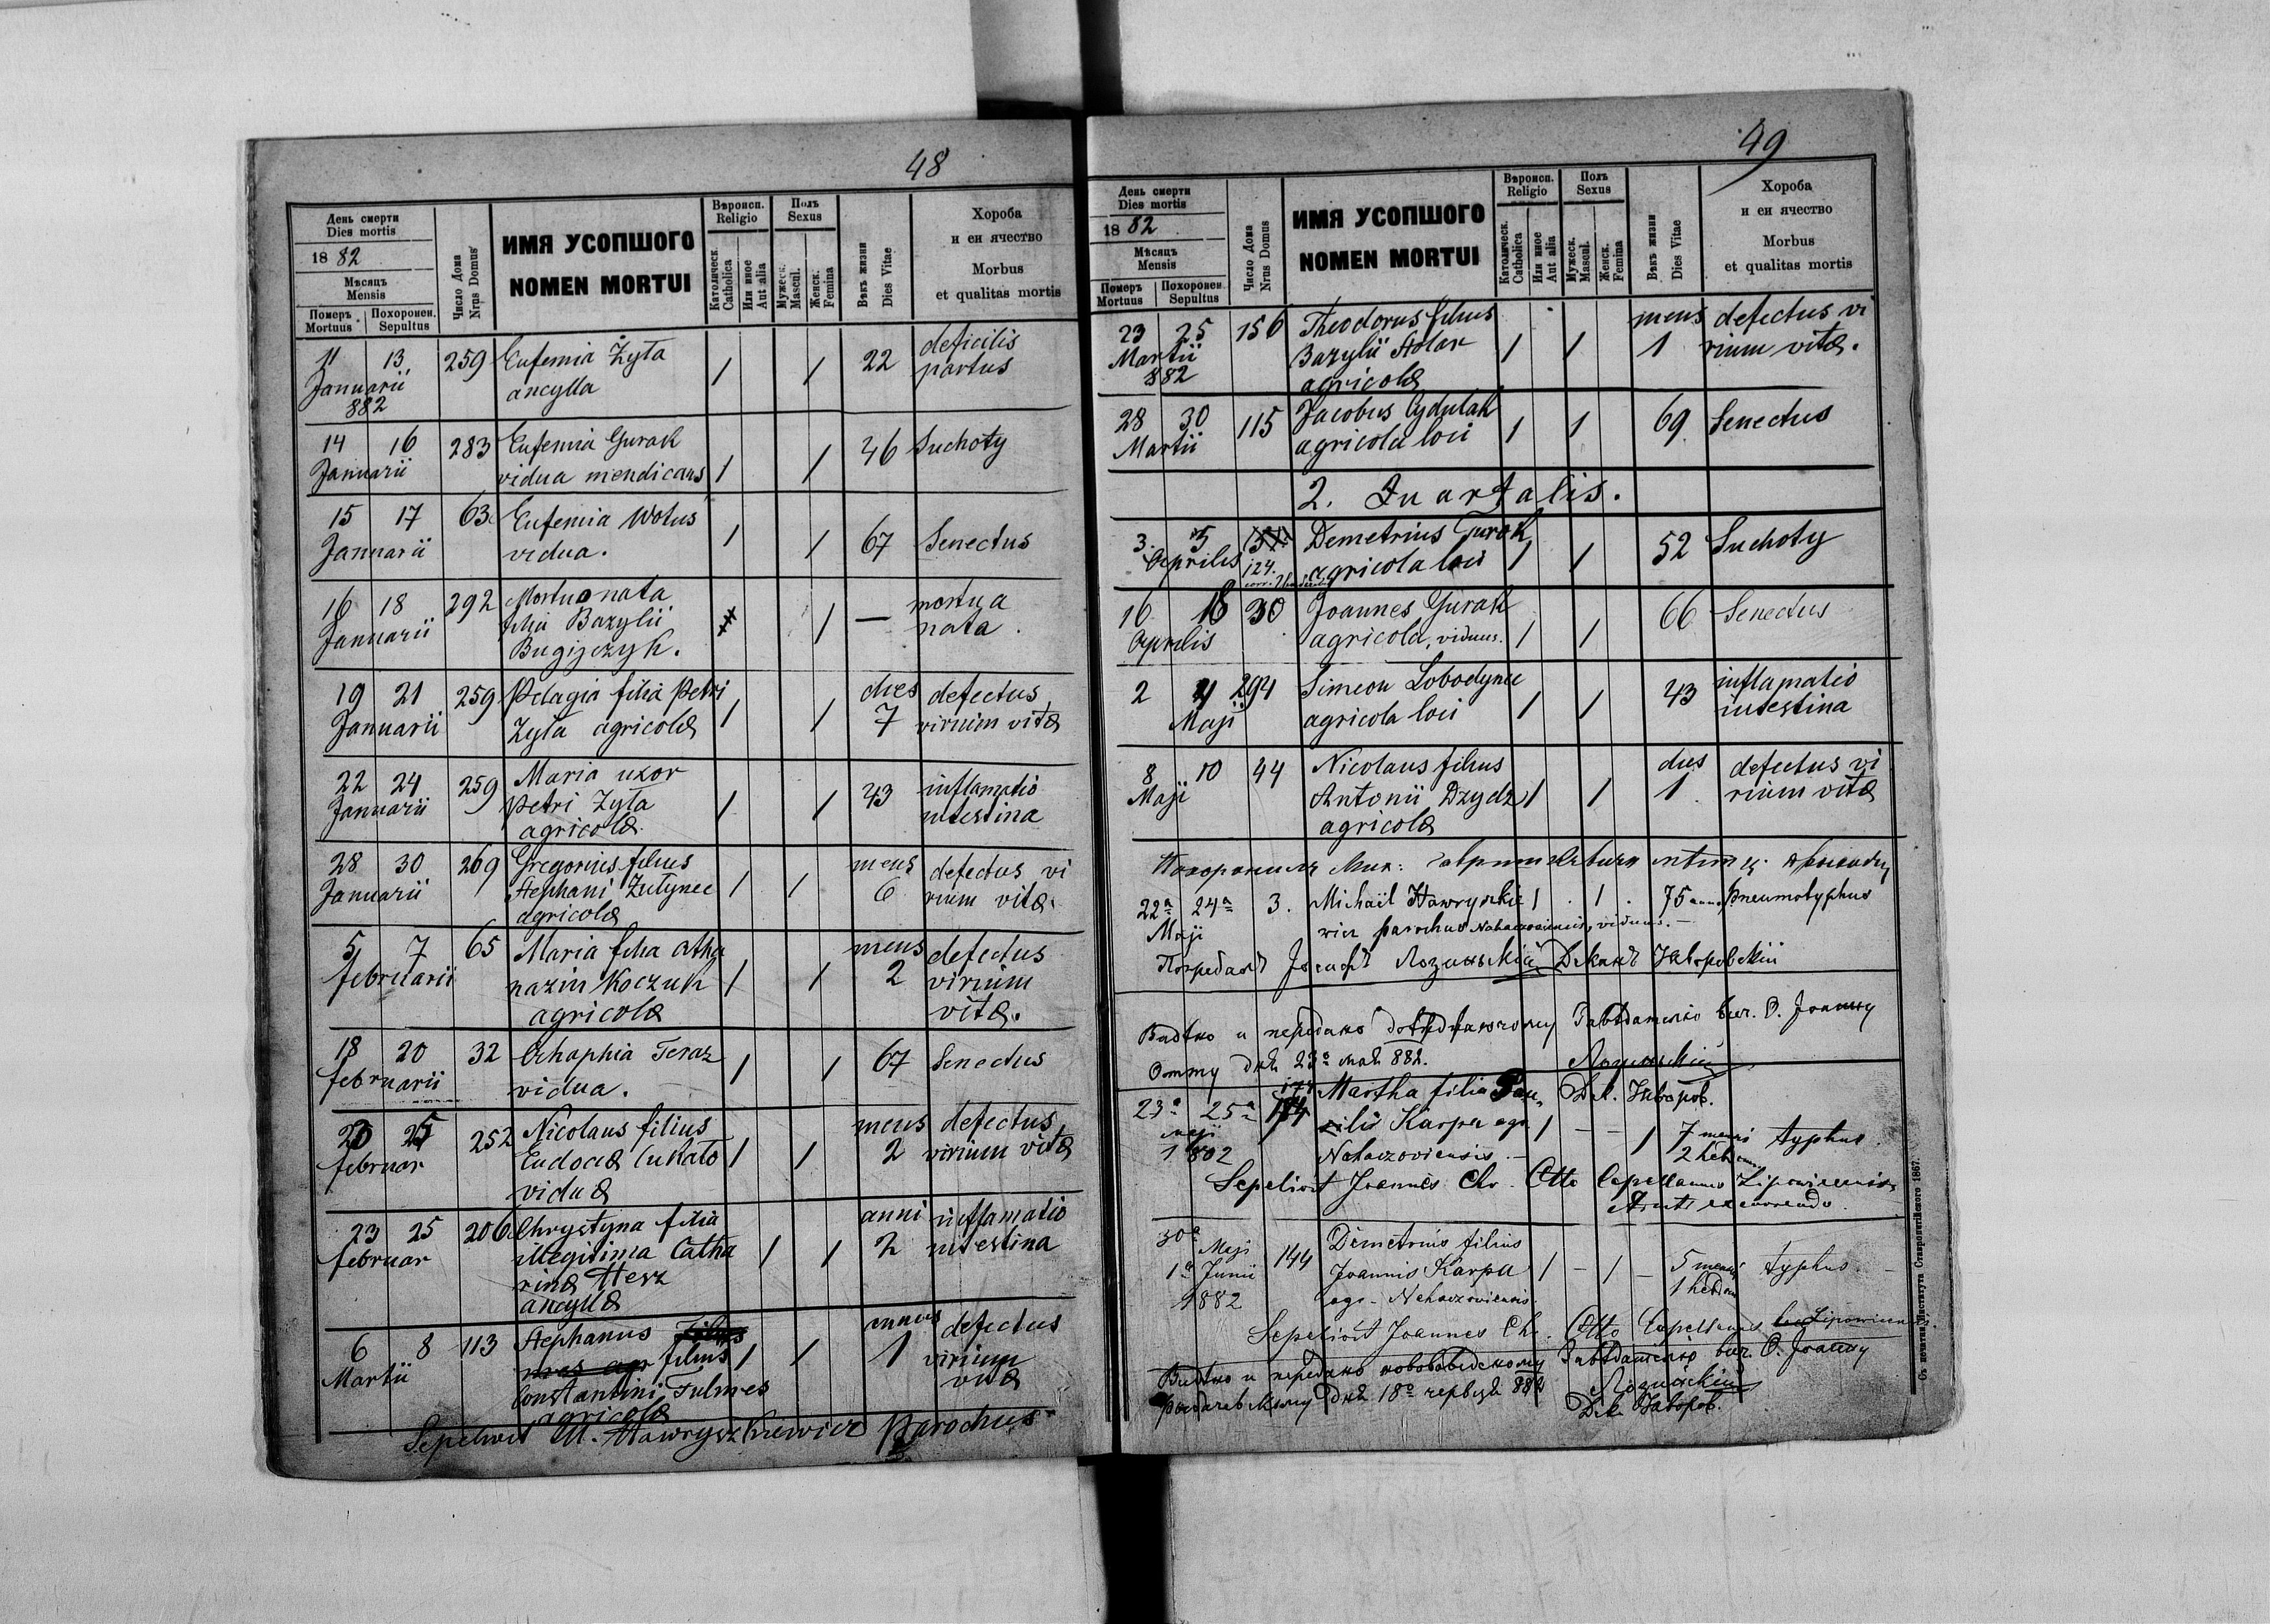 48
День смерти
Dies mortis
18 82
Мѣсяць
Mensis
Померъ
Mortuus
Похоронен.
Sepultus
Число Дома
Nrus Domus
ИМЯ УСОПШОГО
NOMEN MORTUI
Вѣроисп.
Religio
Католическ.
Catholica
Или иное
Aut alia
Полъ
Sexus
Мужеск.
Mascul.
Женск.
Femina
Вѣкъ жизни
Dies Vitae
Хороба
и еи ячество
Morbus
et qualitas mortis
11 13 259 Eufemia Zyła 1 1 22 deficilis
Januarii ancylla partus
882
14 16 283 Eufemia Gurak 46 Suchoty
Januarii vidua mendicans 1 1
15 17 63 Eufemia Wotus 1 1 67 Senectus
Januarii vidua.
16 18 292 Mortuo nata 1 — mortua
Januarii filia Bazylii nata.
19 21 259 Pelagia filia Petri dies defectus
Januarii Zyła agricolæ 1 1 7 virium vitæ
22 24 259 Maria uxor 43 inflamatio
Januarii Petri Zyła 1 1 intestina
agricolæ.
28 30 269 Gregorius filius mens defectus vi
Januarii Stephani Zutynec 1 1 6 rium vitæ.
agricolæ
5 7 65 Maria filia Atha mens defectus
februarii nazin Koczuk 1 1 2 virium
agricolæ vitæ.
18 20 32 Ahaphia Teraz 1 1 67 Senectus
februarii vidua.
25 252 Nicolaus filius mens defectus
februar Eudociæ Lukato 1 1 2 virium vitæ
viduæ
23 25 206 Chrystyna filia anni inflamatio
februar illegitima Catha 1 1 2 intestina
rinæ Hesz
ancyllæ
6 8 113 Stephanus annus defectus
Martii filius 1 1 1 virium
Constantini Tulmes vitæ
agricolæ
Sepelivit M. Hawryszkiewicz Parochus
49
День смерти
Dies mortis
18 82
Мѣсяць
Mensis
Померъ
Mortuus
Похоронен.
Sepultus
Число Дома
Nrus Domus
ИМЯ УСОПШОГО
NOMEN MORTUI
Вѣроисп.
Religio
Католическ.
Catholica
Или иное
Aut alia
Полъ
Sexus
Мужеск.
Mascul.
Женск.
Femina
Вѣкъ жизни
Dies Vitae
Хороба
и еи ячество
Morbus
et qualitas mortis
23 25 156 Theodorus filius mens defectus vi
Martii Bazylii Stolar 1 1 1 rium vitæ.
882 agricolæ
28 30 115 Jacobus Cydulak 1 1 69 Senectus
Martii agricola loci
2. Quartalis.
3. 5 Demetrius Gurak 52 Suchoty
Aprilis 124. agricola loci 1 1
16 18 30 Joannes Gurak 66 Senectus
Aprilis agricola, viduus. 1 1
2 4 294 Simeon Lobodynec 43 inflamatio
Maji agricola loci 1 1 intestina
8 10 44 Nicolaus filius dies defectus vi
Maji Antonii Dzydz 1 1 1 rium vitæ
agricolæ
22ª 24ª 3. Michail Hawryszkie 1 1 75 Pneumotyphus
Maji wicz parochus viduus.
Погребалъ Іосифъ Лозинскій Деканъ Яворовскій
Видѣно и передано
882. Лозинскій
23ª 25ª 174 Martha filia Дек. Яворов.
Maji Karpa agr. 1 — — 1 7 mensi typhus
1882 2 hebd
Sepelivit Joannes Chr. Otto Capellanus
excurrendo.
30ª Maji Demetrius filius
1ª Junii 144 Joannis Karpa 1 — 1 — 5 mensi typhus. —
1882 agr. 1 hebdom
Sepelivit Joannes Chr. Otto Capellanus
Видѣно и передано
дня 18º червця 882 Лозинскій
Дек. Яворов.
Съ печатни Института Ставропигійского 1867.